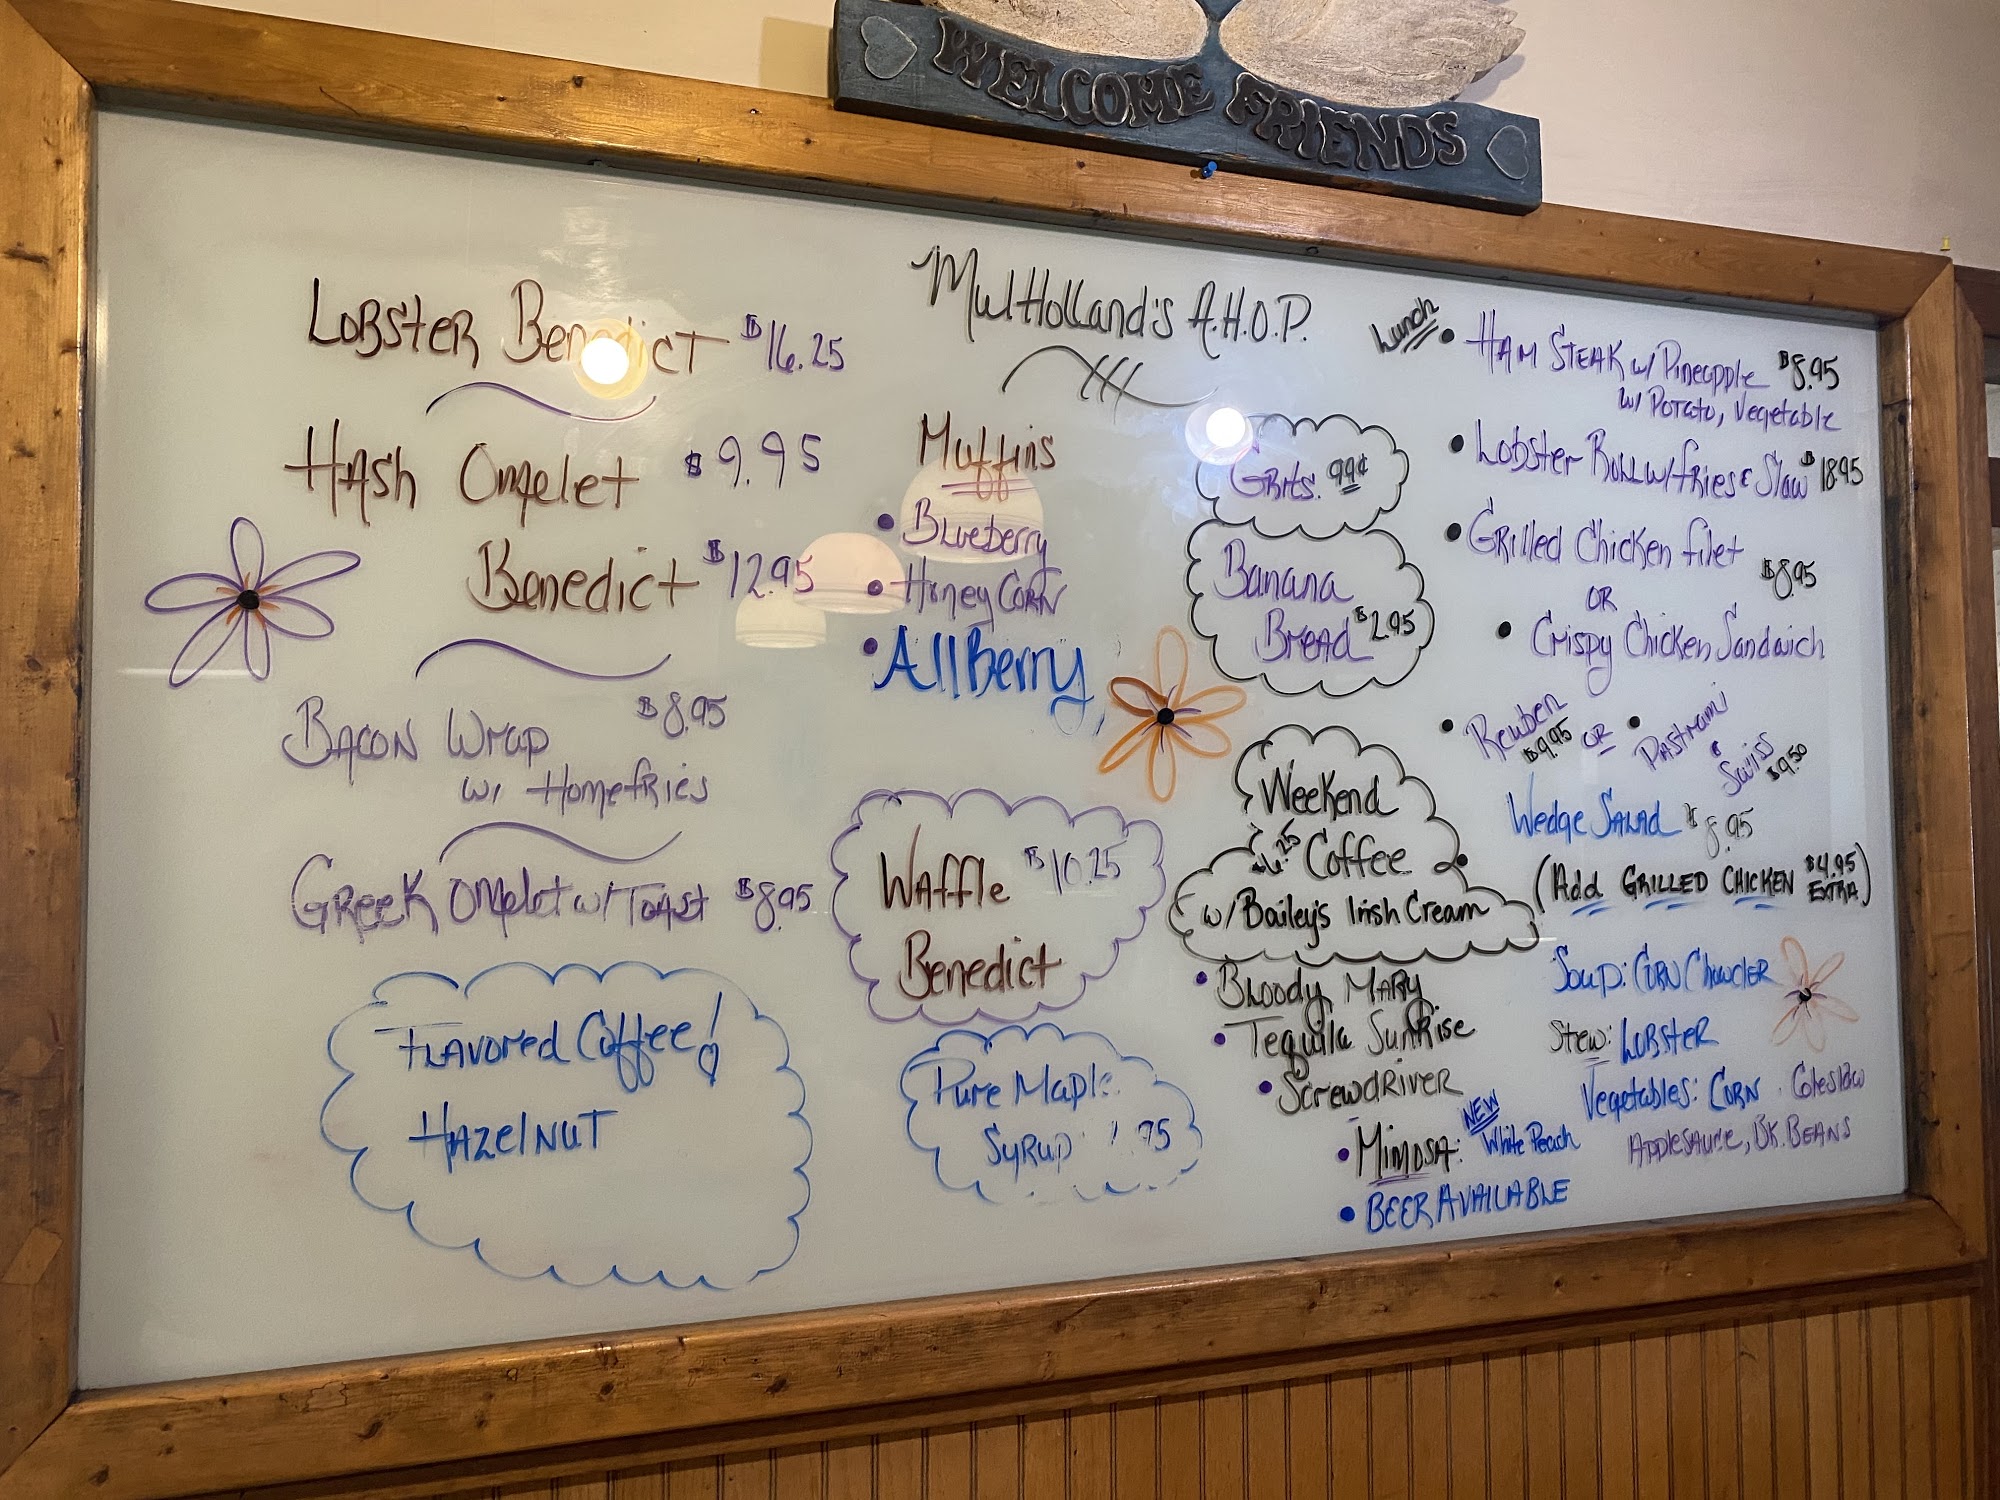 WELCOME FRIENDS
MulHolland's A.H.O.P.
LOBSTER Benedict $16.25
HASH Omelet $9.95
Benedict $12.95
BACON Wrap $8.95
w/ Homefries
GREEK OMelet w/ TOAST $8.95
FLAVORED Coffee!
HAZELNUT
Muffins
• Blueberry
• Honey CORN
• All Berry
Waffle $10.25
Benedict
Pure Maple
SYRUP
Grits 99¢
Banana
Bread $2.95
Weekend
Coffee
w/ Bailey's Irish Cream
• Bloody MARY
• Tequila SunRise
• ScrewdRiver
• MIMOSA: NEW White Peach
• BEER AVAILABLE
Lunch
• HAM STEAK w/ Pineapple $8.95
w/ POTATO, Vegetable
• Lobster Roll w/ fries & Slaw $18.95
• GRilled Chicken filet
OR $8.95
• Crispy Chicken Sandwich
• Reuben $9.95 OR • PASTRAMI & Swiss $9.50
Wedge SALAD $8.95
(Add GRILLED CHICKEN $4.95 EXTRA)
Soup: CORN Chowder
Stew: LOBSTER
Vegetables: CORN, Coleslaw
APPLESAUCE, BK. BEANS